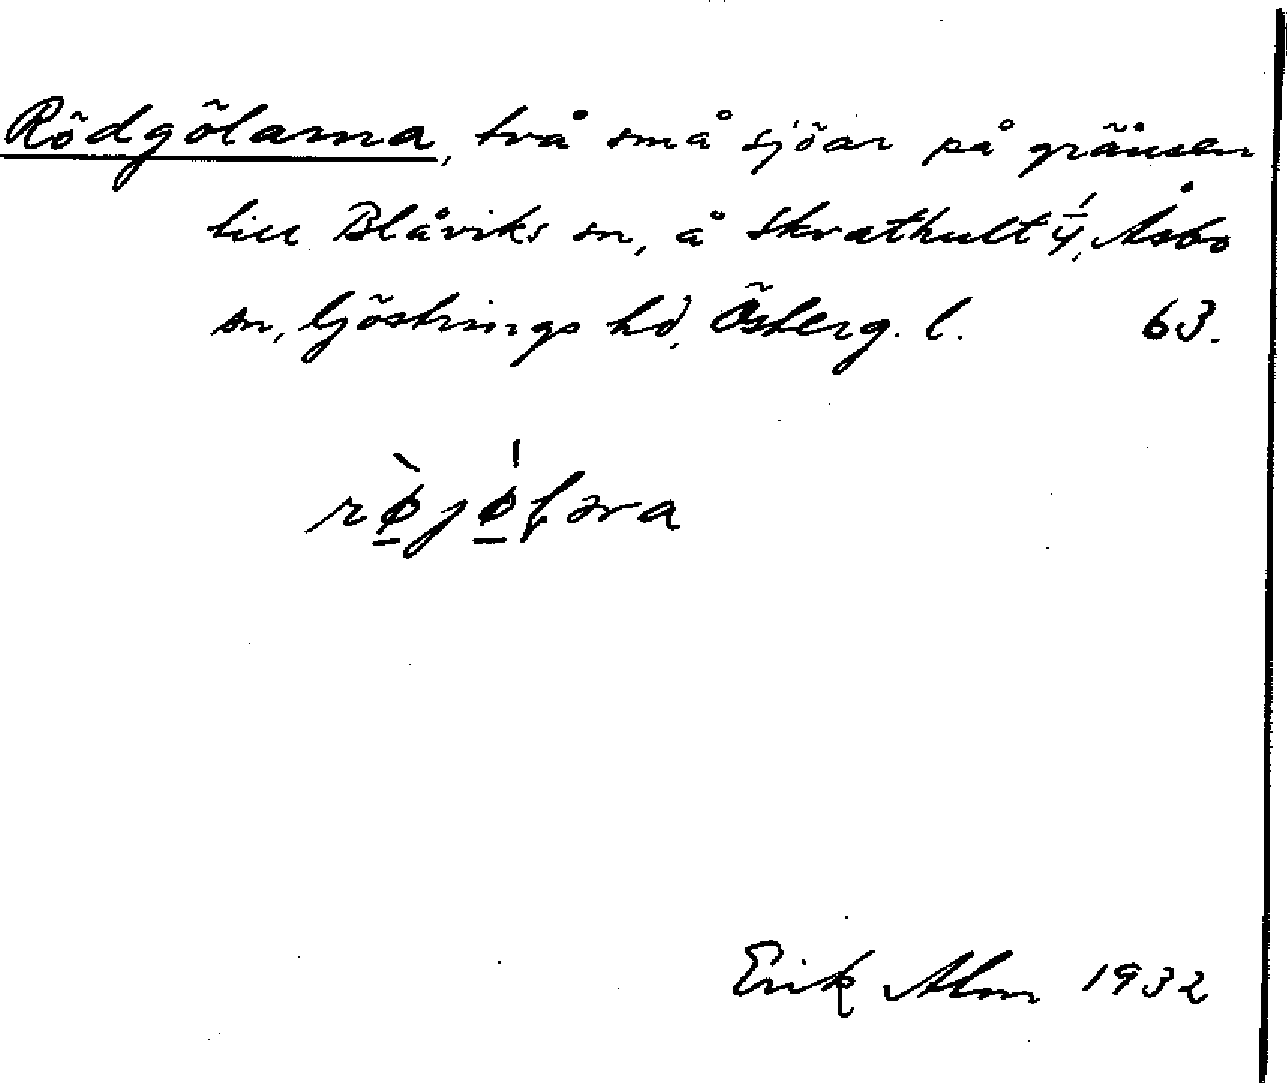 Rödgölarna, två små sjöar på gränsen
till Blåviks sn, å Skrathult 1/4, Åsbo
sn, Göstrings hd, Österg. l. 63.
rø̀jø̍ɭəra
Erik Alm 1932